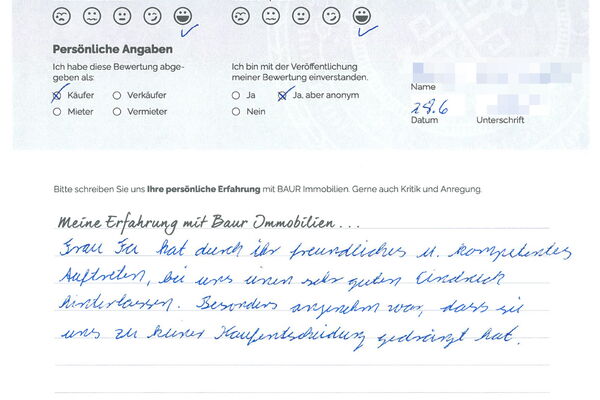 Persönliche Angaben
Ich habe diese Bewertung abge-
geben als:
Käufer
Verkäufer
Mieter
Vermieter
Ich bin mit der Veröffentlichung
meiner Bewertung einverstanden.
Ja
Ja, aber anonym
Nein
Name
28.6
Datum
Unterschrift
Bitte schreiben Sie uns Ihre persönliche Erfahrung mit BAUR Immobilien. Gerne auch Kritik und Anregung.
Meine Erfahrung mit Baur Immobilien...
Frau hat durch ihr freundliches u. kompetentes
Auftreten, bei uns einen sehr guten Eindruck
hinterlassen. Besonders angenehm war, dass sie
uns zu keiner Kaufentscheidung gedrängt hat.